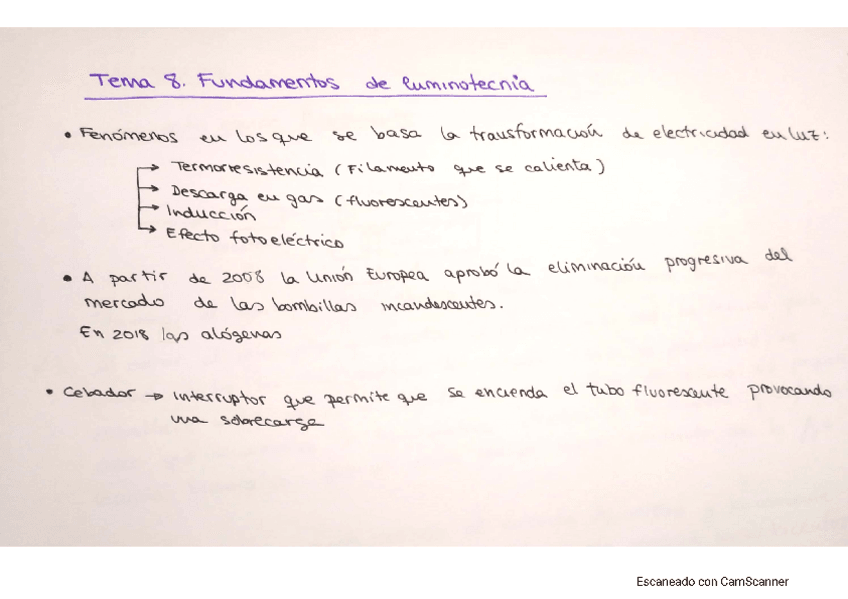 Tema 8. Fundamentos de luminotecnia
• Fenómenos en los que se basa la transformación de electricidad en luz:
→ Termorresistencia (Filamento que se calienta)
→ Descarga en gas (fluorescentes)
→ Inducción
→ Efecto fotoeléctrico
• A partir de 2008 la Unión Europea aprobó la eliminación progresiva del
mercado de las bombillas incandescentes.
En 2018 las alógenas
• Cebador → Interruptor que permite que se encienda el tubo fluorescente provocando
una sobrecarga
Escaneado con CamScanner